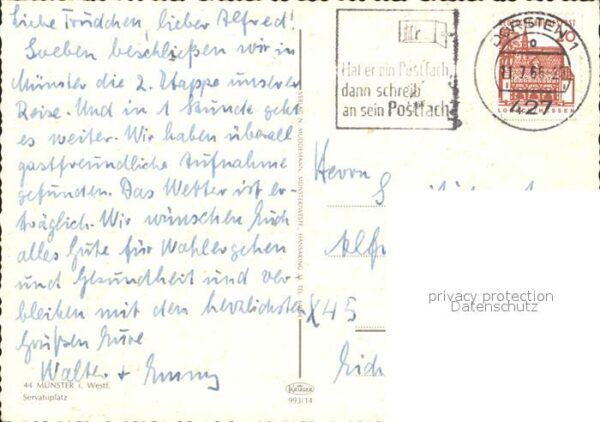 Liebe Trudchen, lieber Alfred!
Soeben beschließen wir in
Münster die 2. Etappe unserer
Reise. Und in 1 Stunde geht
es weiter. Wir haben überall
gastfreundliche Aufnahme
gefunden. Das Wetter ist er-
träglich. Wir wünschen Euch
alles Gute für Wohlergehen
und Gesundheit und ver-
bleiben mit den herzlichsten
Grüßen Eure
Walter + Emmy
44 MÜNSTER i. Westf.
Servatiiplatz
Hat er ein Postfach,
dann schreib'
an sein Postfach
DORSTEN 1
427
Herrn
Alfr
X 45
Eich
KRÜGER
993/14
privacy protection
Datenschutz